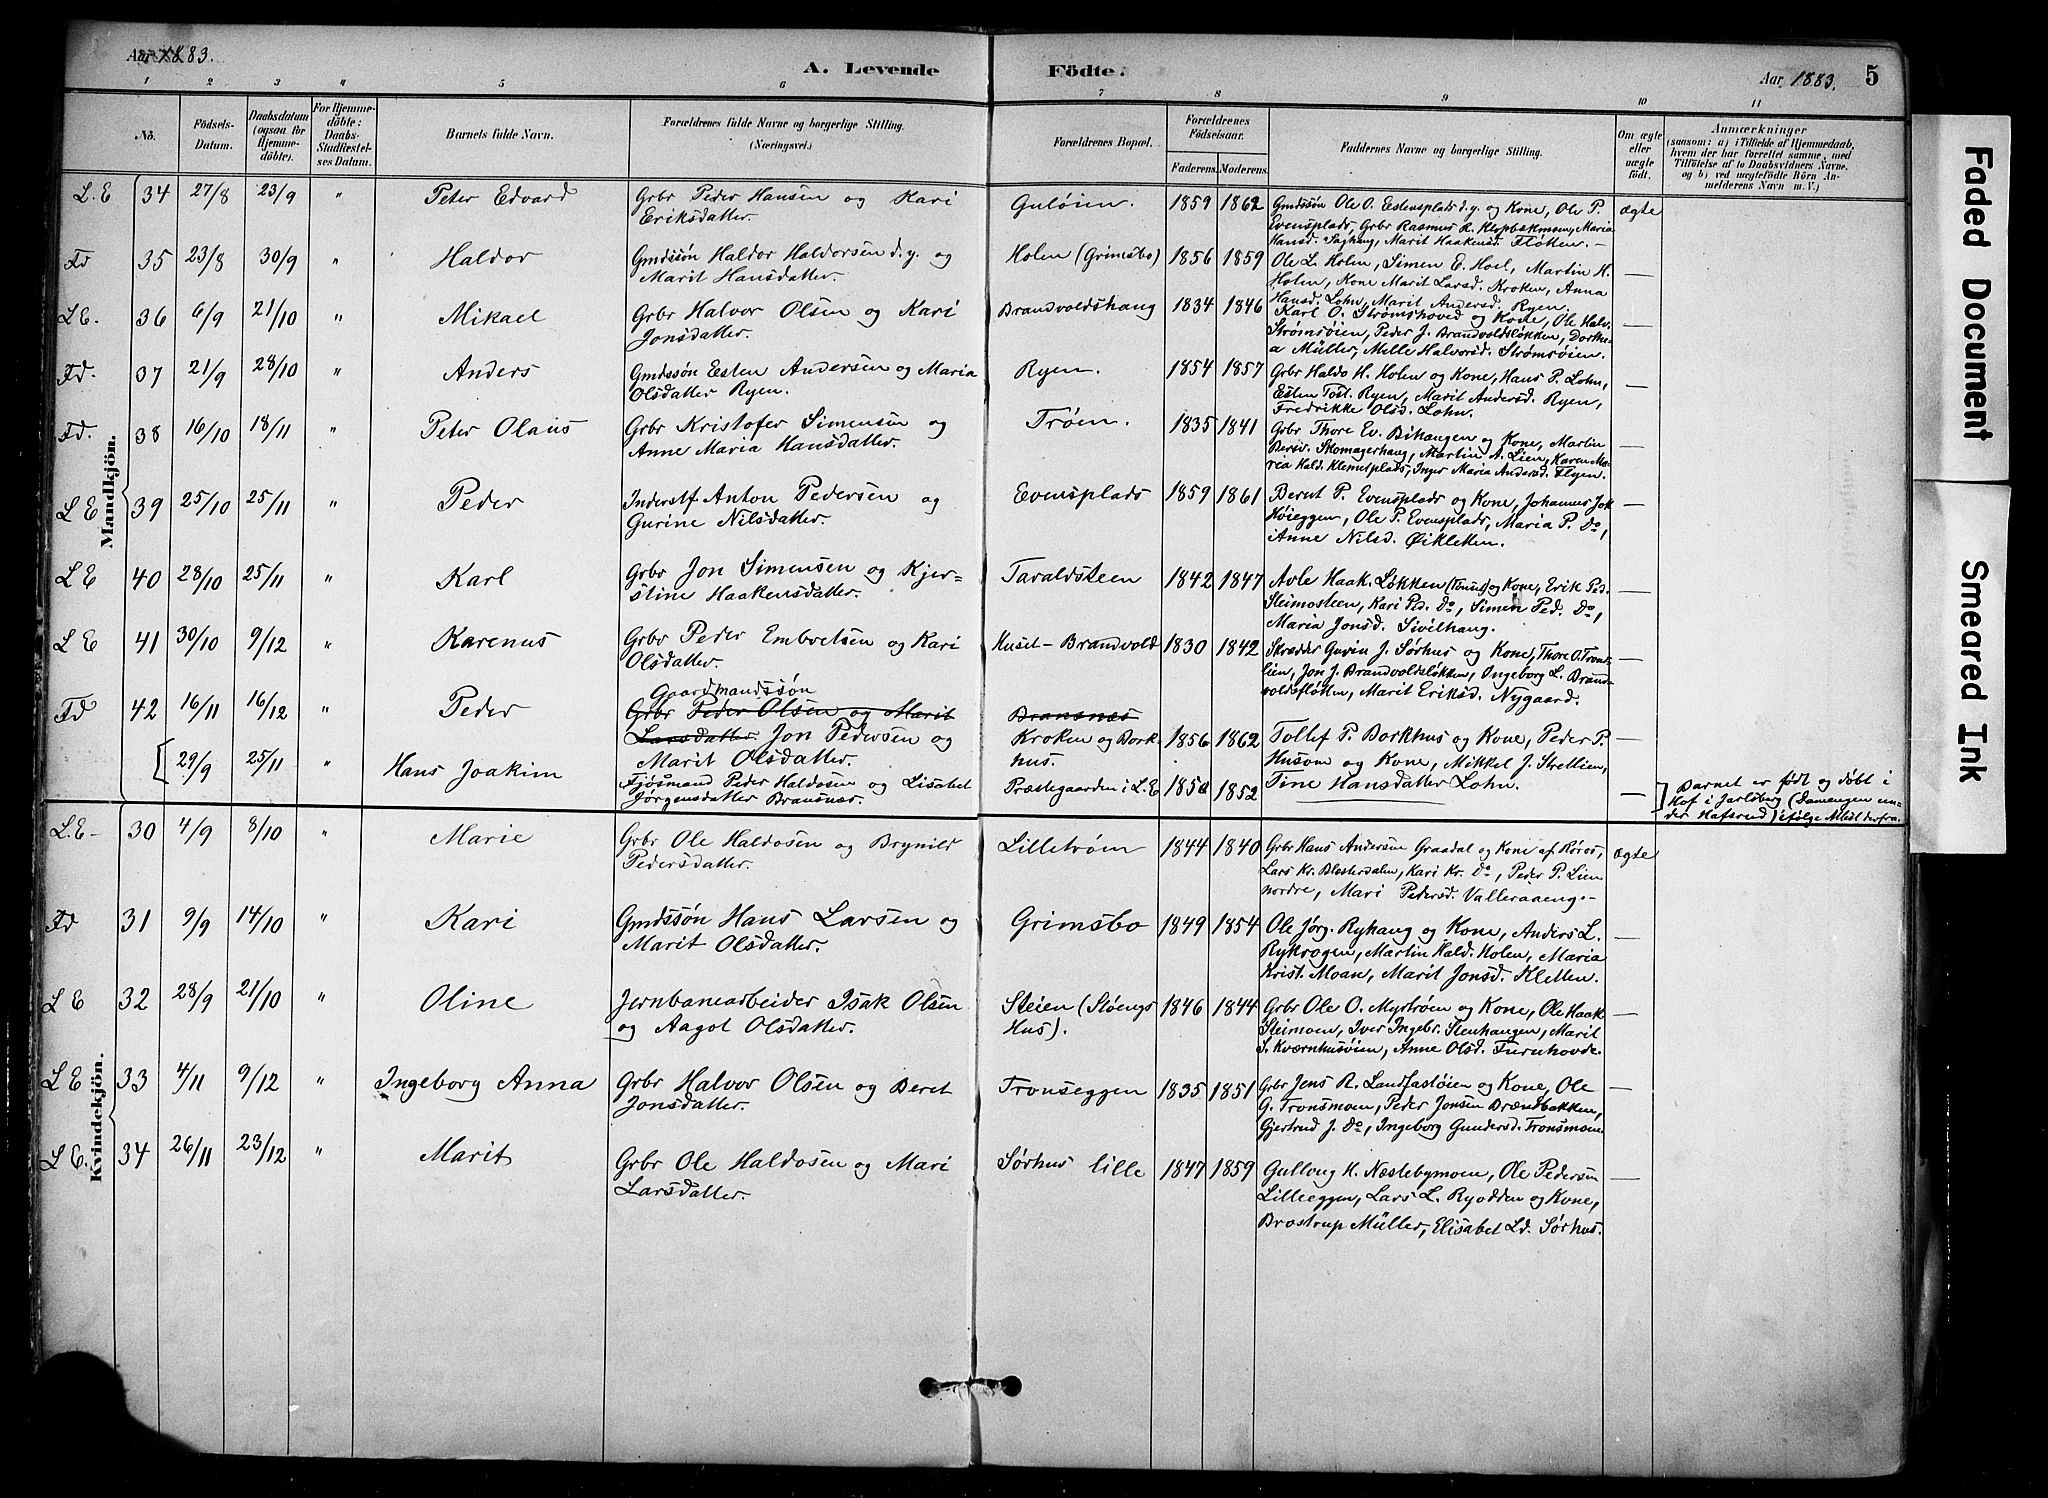 Aar 1883.
A. Levende Födte.
Aar 1883. 5
1 2 3 4 5 6 7 8 9 10 11
No.
Födsels-Datum.
Daabsdatum (ogsaa for Hjemmedöbte).
For Hjemmedöbte: Daabs-Stadfæstelses Datum.
Barnets fulde Navn.
Forældrenes fulde Navne og borgerlige Stilling. (Næringsvei.)
Forældrenes Bopæl.
Forældrenes Födselsaar.
Faderens. Moderens.
Faddernes Navne og borgerlige Stilling.
Om ægte eller uægte födt.
Anmærkninger
(sansom: a) i Tilfælde af Hjemmedaab, hvem der har forrettet samme, med Tilföielse af to Daabsvidners Navne. og b) ved uægtefödte Börn Anmelderens Navn m. V.)
Mandkjön.
L.E 34 27/8 23/9 " Peter Edvard
Grbr Peder Hansen og Kari
Eriksdatter.
Guløien. 1859 1862
Gmdssøn Ole O. Estensplads d.y. og Kone, Ole P.
Evensplads, Grbr Rasmus R. Klopbakmoen, Maria
Hansd. Saghaug, Marit Haakensd. Fløtten. -
ægte
Fd 35 23/8 30/9 " Haldor
Gmdssön Haldor Haldorsen d.y. og
Marit Hansdatter.
Holen (Grimsbo) 1856 1859
Ole L. Holen, Simen E. Hoel, Martin H.
Holen, Kone Marit Larsd. Kroken, Anna
Hansd. Lohn, Marit Andersd. Ryen.
—
L E. 36 6/9 21/10 " Mikael
Grbr Halvor Olsen og Kari
Jonsdatter.
Brandvoldshaug 1834 1846
Karl O. Strømshoved og Kone, Ole Halv.
Strømsøien, Peder J. Brandvoldsløkken, Dorthe-
a Müller, Mille Halvorsd. Strømsøien.
—
Fd. 37 21/9 28/10 " Anders
Gmdssön Esten Andersen og Maria
Olsdatter Ryen.
Ryen. 1854 1857
Grbr Haldo H. Holen og Kone, Hans P. Lohn,
Esten Tost. Ryen, Marit Andersd. Ryen,
Fredrikke Olsd. Lohn.
—
Fd. 38 16/10 18/11 " Peter Olaus
Grbr Kristofer Simensen og
Anne Maria Hansdatter.
Trøen. 1835 1841
Grbr Thore Ev. Bihaugen og Kone, Martin
Bersv. Skomagerhaug, Martin A. Lien, Karen Ma-
ria Hald. Klemetplads, Inger Maria Andersd. Flyen.
—
L E 39 25/10 25/11 " Peder
Inderstf Anton Pedersen og
Gurine Nilsdatter.
Evensplads 1859 1861
Bernt P. Evensplads og Kone, Johannes Joh
Høieggen, Ole P. Evensplads, Maria P. Do,
Anne Nilsd. Øikletten.
—
L E 40 28/10 25/11 " Karl
Grbr Jon Simensen og Kjer-
stine Haakensdatter.
Taraldsteen 1842 1847
Avle Haak. Løkken (Tönset) og Kone, Erik Ped.
Steimosteen, Kari Ped. Do, Simen Ped. Do,
Maria Jonsd. Sivilhaug.
—
L E 41 30/10 9/12 " Karenus
Grbr Peder Embretsen og Kari
Olsdatter.
Huset-Brandvold 1830 1842
Skrædder Guvin J. Sørhus og Kone, Thore O. Trons-
lien, Jon J. Brandvoldsløkken, Ingeborg L. Brand-
voldsfløtten, Marit Eriksd. Nygaard.
—
Fd 42 16/11 16/12 " Peder
Gaardmandssøn
Grbr Peder Olsen og Marit
Larsdatter Jon Pedersen og
Marit Olsdatter.
Bransnæs
Kroken og Bork-
hus. 1856 1862
Tollef P. Borkhus og Kone, Peder P.
Husom og Kone, Mikkel J. Strettien,
Tine Hansdatter Lohn.
—
[ 29/9 25/11 Hans Joakim
Fjøsmand Peder Haldosen og Lisabet
Jørgensdatter Bransnæs.
Præstegaarden i L.E 1850 1852
—
] Barnet er født og døbt i
Hof i Jarlsberg (Damengen un-
der Hafsrud) ifølge Atest derfra.
Kvindekjön.
L.E- 30 4/9 8/10 " Marie
Grbr Ole Haldosen og Brynild
Pedersdatter.
Lilletrøen 1844 1840
Grbr Hans Andersen Graadal og Kone af Røros,
Lars Kr. Blesterdalen, Kari Kr. Do, Peder P. Lien
nordre, Mari Pedersd. Valleraaeng.-
ægte
Fd 31 9/9 14/10 " Kari
Gmdssøn Hans Larsen og
Marit Olsdatter.
Grimsbo 1849 1854
Ole Jørg. Ryhaug og Kone, Anders L.
Rykrogen, Martin Hald. Holen, Maria
Krist. Moan, Marit Jonsd. Kletten.
—
L E 32 28/9 21/10 " Oline
Jernbanearbeider Isak Olsen
og Aagot Olsdatter.
Steien (Støengs
Hus). 1846 1844
Grbr Ole O. Myrtrøen og Kone, Ole Haak
Steimoen, Iver Ingebr. Stenhaugen, Marit
S. Kværnhusøien, Anne Olsd. Turnhovde.
—
L E 33 4/11 9/12 " Ingeborg Anna
Grbr Halvor Olsen og Beret
Jonsdatter.
Tronseggen 1835 1851
Grbr Jens R. Landfastøien og Kone, Ole
G. Tronsmoen, Peder Jonsen Brændbakken,
Gjertrud J. Do, Ingeborg Gundersd. Tronsmoen.
—
L E. 34 26/11 23/12 " Marit
Grbr Ole Haldosen og Mari
Larsdatter.
Sørhus lille 1847 1859
Gullaug H. Næstebymoen, Ole Pedersen
Lilleeggen, Lars L. Ryodden og Kone,
Brostrup Müller, Elisabet Ld. Sørhus.
—
Faded Document
Smeared Ink